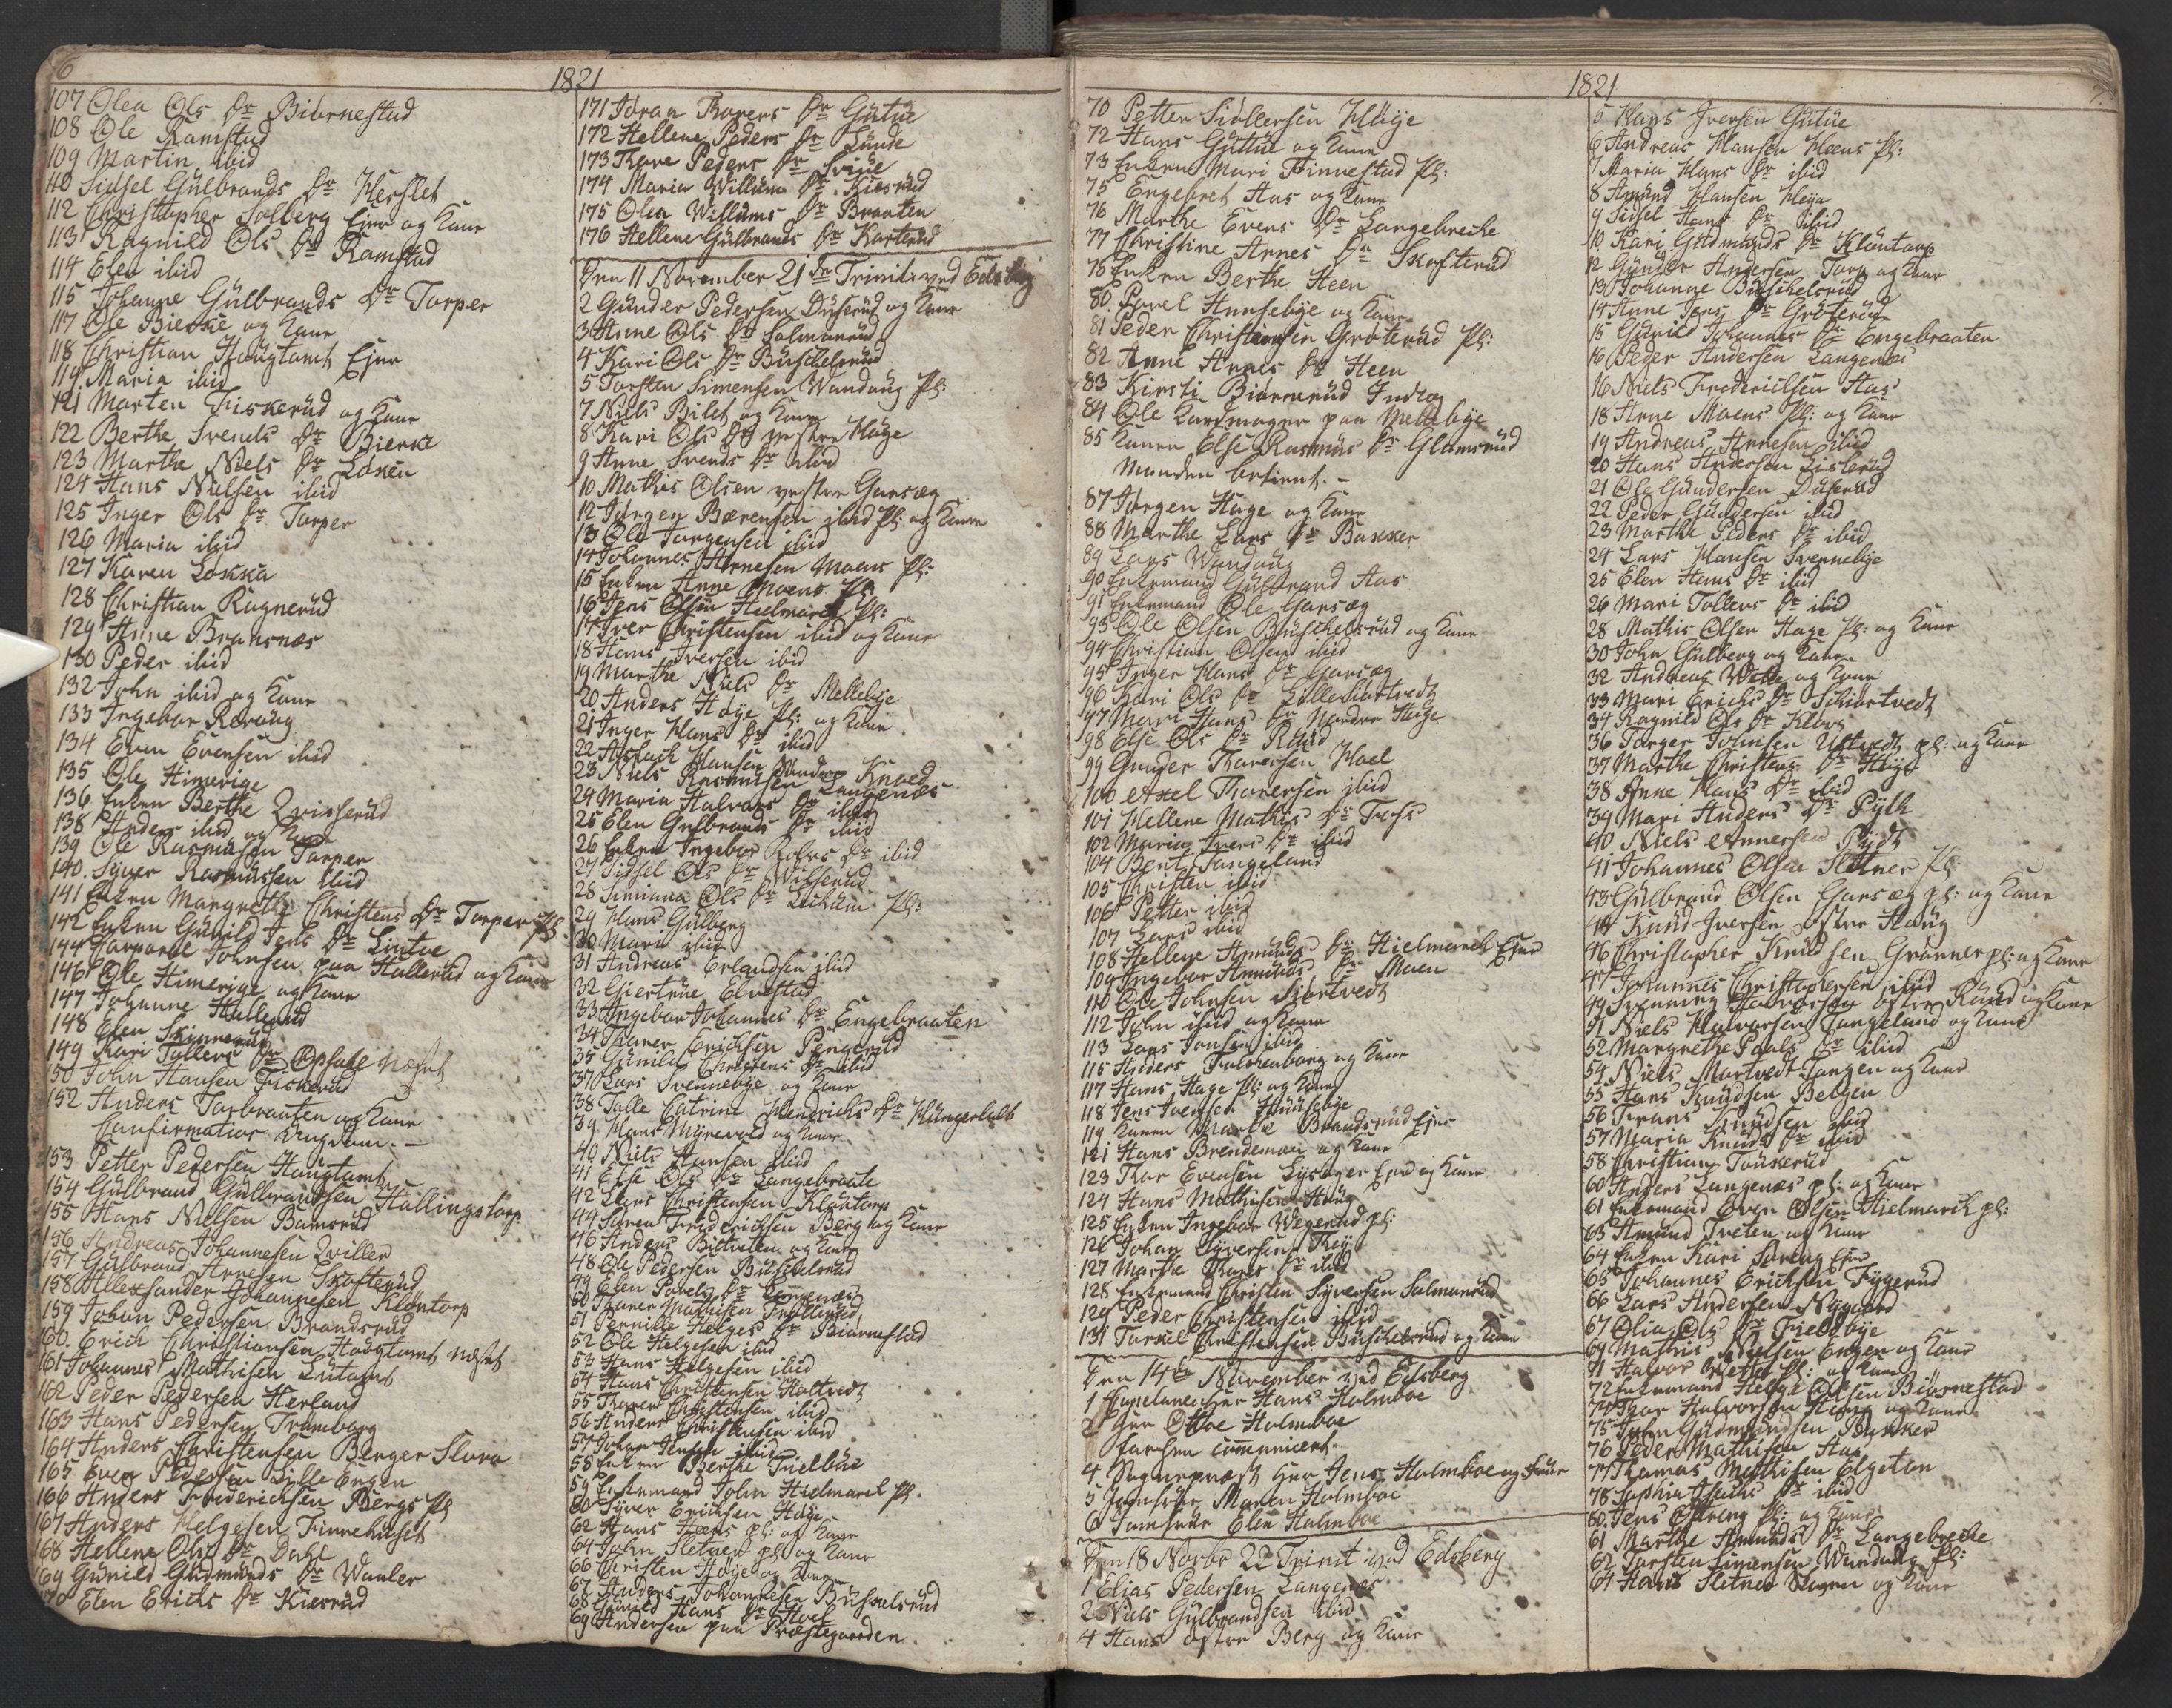 6
1821
107 Olea Ols Dr Biørnestad
108 Ole Ramstad
109 Martin ibid
110 Sidsel Gülbrands Dr Herslet
112 Christopher Solberg Ejer og Kone
113 Ragnild Ols Dr Ramstad
114 Elen ibid
115 Johanne Gülbrands Dr Torper
117 Ole Bierke og Kone
118 Christian Haugtomt Ejer
119 Maria ibid
121 Morten Fiskerüd og Kone
122 Berthe Svends Dr Bierke
123 Marthe Niels Dr Løken
124 Hans Nielsen ibid
125 Inger Ols Dr Torper
126 Maria ibid
127 Karen Løkka
128 Christian Rugnerüd
129 Anne Bransnæs
130 Peder ibid
132 John ibid og Kone
133 Ingebor
134 Even Evensen ibid
135 Ole Himerige
136 Enken Berthe
138 Anders ibid og Kone
139 Ole Rasmusen Torper
140. Syver Rasmussen ibid
141 Enken Margrethe Christens Dr Torper Pl
142 Enken Günild Jens Dr
144 Johnsen paa Hallerüd og Kone
146 Ole Himerige og Kone
147 Johanne Hallerüd
148 Elen Skinnerüd
149 Kari Tollevs Dr Opsahl Næset
50 John Hansen Fiskerüd
152 Anders Torbraaten og Kone
Confirmatior Ungdom. —
153 Petter Pedersen Haugtomt
154 Gülbrand Gülbrandsen Hallingstorp
155 Hans Nielsen Bamsrüd
156 Andreas Johannesen Qviller
157 Gülbrand Arnesen Skofterüd
158 Allexsander Johannesen Kløntorp
159 Johan Pedersen Brandsrüd
160. Erich Christiansen Haugtomt Næset
161 Johannes Mathisen
162 Peder Pedersen Herland
163 Hans Pedersen Tromborg
164 Anders Christensen Berger Slora
165 Even Pedersen Lille Engen
166 Anders Frederichsen Bergs Pl
167 Anders Helgesen Finnehuset
168 Hellene Ols Dr Dahl
169 Günild Güdmünds Dr Wauler
170 Elen Erichs Dr Kierrüd
171 Joran Thorers Dr Gütue
172 Hellene Peders Dr Lunde
173 Thore Peders Dr
174 Maria Willums Dr Kierrüd
175 Olea Willums Dr Braaten
176 Hellene Gülbrands Dr Karterüd
Den 11 November 21de Trinit: ved Edsberg
2 Gunder Pedersen Düserüd og Kone
3 Anne Ols Dr Solmanrüd
4 Kari Ols Dr Büschelsrüd
5 Torsten Simensen Wandaug Pl:
7 Niels Bilet og Kone
8 Kari Ols Dr vestre Hage
9 Anne Svends Dr ibid
10 Mathis Olsen vestre Garsæg
12 Jørgen Børensen ibid Pl: og Kone
13 Ole Jørgensen ibid
14 Johannes Arnesen Moens Pl:
15 Enken Anne Moens Pl:
16 Jens Olsen Hielmark Pl:
17 Iver Christensen ibid og Kone
18 Hans Iversen ibid
19 Marthe Niels Dr Mellebye
20 Anders Høje Pl: og Kone
21 Inger Hans Dr ibid
22 Aslach Hansen Knoed
23 Niels Rasmusen Langenæs
24 Maria Halvors Dr ibid
25 Elen Gulbrands Dr ibid
26 Enken Ingebor Dr ibid
27 Sidsel Ols Dr
28 Simiana Ols Dr Pl:
29 Hans Gülberg
30 Maren ibid
31 Andreas Erlandsen ibid
32 Giertrue Elvestad
33 Ingebor Johannes Dr Engebraaten
34 Thorer Erichsen Pengerüd
35 Günild Christens Dr ibid
37 Lars Svennebye og Kone
38 Talle Catrine Hendrichs Dr
39 Hans Myrevold og Kone
40 Niels Hansen ibid
41 Else Ols Dr Langebraate
42 Lars Christensen Kløntorp
44 Søren Fredericksen Berg og Kone
46 Anders og Kone
48 Ole Pedersen Büschelsrüd
49 Elen Povels Dr Langenæs
50 Thorer Mathisen
51 Pernille Helges Dr Biørnestad
52 Ole Helgesen ibid
53 Hans Helgesen ibid
54 Hans Christensen Holtvedt
55 Thorer Christensen ibid
56 Anders Christensen ibid
57 Johan ibid
58 Enken Berthe Fielbüe
59 Enkemand John Hielmarck Pl.
60 Syver Erichsen Høje
62 Hans Heens pl: og Kone
64 John Sletner pl: og Kone
66 Christen Høje og Kone
67 Anders Johannesen Büskelsrüd
68 Günild Hans Dr Hoel
69 Andersen paa Præstegaarden.
1821
7.
70 Petter Siøllersen Høye
72 Hans Güttüe og Kone
73 Enken Mari Finnestad Pl:
75 Engebret Aas og Kone
76 Marthe Evens Dr Langebreche
77 Christine Arnes Dr Skofterüd
78 Enken Berthe Heen
80. Povel Hunsebye og Kone
81. Peder Christiansen Groterüd Pl:
82 Anne Arnes Dr Heen
83 Kirsti Biørnerüd Inderst
84 Ole Kardemager paa Mellebye
85 Konen Else Rasmus Dr Glomsrüd
Manden betient. —
87 Jørgen Hage og Kone
88 Marthe Lars Dr Bakker
89 Lars Wandaug
90 Enkemand Gülbrand Aas
91 Enkemand Ole Garsæg
93 Ole Olsen Büschelsrüd og Kone
94 Christian Olsen ibid
95 Inger Hans Dr Garsæg
96 Kari Ols Dr Lille Siørtvedt
97 Mari Hans Dr Nordre Hage
98 Else Ols Dr Rüud
99 Gunder Thorersen Hoel
100 Axel Thorersen ibid
101 Hellene Mathis Dr Foss
102 Maria Ivers Dr ibid
104 Bent Tangeland
105 Christen ibid
106 Petter ibid
107 Lars ibid
108 Hellene Amunds Dr Hielmarck Ejer
109 Ingebor Amunds Dr Moen
110 Ole Johnsen Siørtvedt
112 John ibid og Kone
113 Lars Jonsen ibid
115 Anders Falkenborg og Kone
117 Hans Hage Pl: og Kone
118 Jens Ivensen Huusebye
119 Konen Marthe Brandsrüd Ejer
121 Hans Brendemoen og Kone
123 Thor Evensen Lysager Ejer og Kone
124 Hans Mathisen Haug
125 Enken Ingebor Wegerüd pl:
126 Johan Syversen
127 Marthe Dr ibid
128 Enkemand Christen Syversen Solmanrüd
129 Peder Christensen ibid
131 Torkel Christensen Büschelsrüd og Kone
Den 14de November ved Edsberg
1 Capelanen Her Hans Holmboe
2 Her Otto Holmboe
førsten communicert.
4. Sognepræst Her Jens Holmboe og Frue
5 Jomfrue Maren Holmboe
6 Jomfrue Elen Holmboe
Den 18 Novbr 22 Trinit. ved Edsberg
1 Elias Pedersen Langenæs
2 Niels Gülbrandsen ibid
4 Hans østre Berg og Kone
5 Hans Iversen Gütüe
6 Andreas Hansen Heens Pl:
7 Maria Hans Dr ibid
8 Amünd Hansen Høye
9 Sidsel Hans Dr ibid
10. Kari Güdmünds Dr Kløntorp
12 Günder Andersen Torp og Kone
13 Johanne Büschelsrüd
14 Anne Jens Dr Groterüd
15 Günild Johannes Dr Engebraaten
16 Peder Andersen Langenæs
16 Niels Frederichsen Aas
18 Arne Moens Pl: og Kone
19 Andreas Arnesen ibid
20 Hans Andersen Lislerüd
21 Ole Gündersen Düserüd
22 Peder Gündersen ibid
23 Marthe Peders Dr ibid
24 Lars Hansen Svennebye
25 Elen Hans Dr ibid
26 Mari Tollevs Dr ibid
28 Mathis Olsen Hage Pl: og Kone
30 John Gülberg og Kone
32 Andreas og Kone
33 Mari Erichs Dr Schiørtvedt
34 Ragnild Ols Dr
36 Torger Johnsen Ustvedt pl: og Kone
37 Marthe Christens Dr Høye
38 Anne Hans Dr ibid
39 Mari Anders Dr
40 Niels Annersen
41 Johannes Olsen Slettner Pl:
43 Gülbrand Olsen Garsæg pl: og Kone
44 Knud Iversen østre Haug
46 Christopher Knudsen Grønner pl: og Kone
47 Johannes Christophersen ibid
49 Svenning Halvorsen østre Rüud og Kone
51 Niels Halvorsen Tangeland og Kone
52 Margrethe Poals Dr ibid
54 Niels Martvedt Tangen og Kone
55 Hans Knudsen Belgen
56 Frans Knudsen ibid
57 Maria Knuds Dr ibid
58 Christian Touserüd
60 Anders Langenæs pl: og Kone
61 Enkemand Even Olsen Hielmarck pl:
63 Amund Tveten og Kone
64 Enken Kari Ejer
65 Johannes Erichsen Fygerüd
66 Lars Andersen Nygaard
67 Olia Ols Dr Fieldbye
69 Mathis Nielsen Enger og Kone
71 Halvor Pl: og Kone
72 Enkemand Helge Olsen Biørnestad
74 Thor Halvorsen Haug og Kone
75 John Gudmundsen Bakker
76 Peder Mathisen Aas
77 Thomas Mathisen Elgeton
78 Sophia Dr ibid
60. Jens Pl: og Kone
61 Marthe Amunds Dr Langebreche
62 Torsten Simensen Wandaug Pl:
64 Hans Sletner og Kone